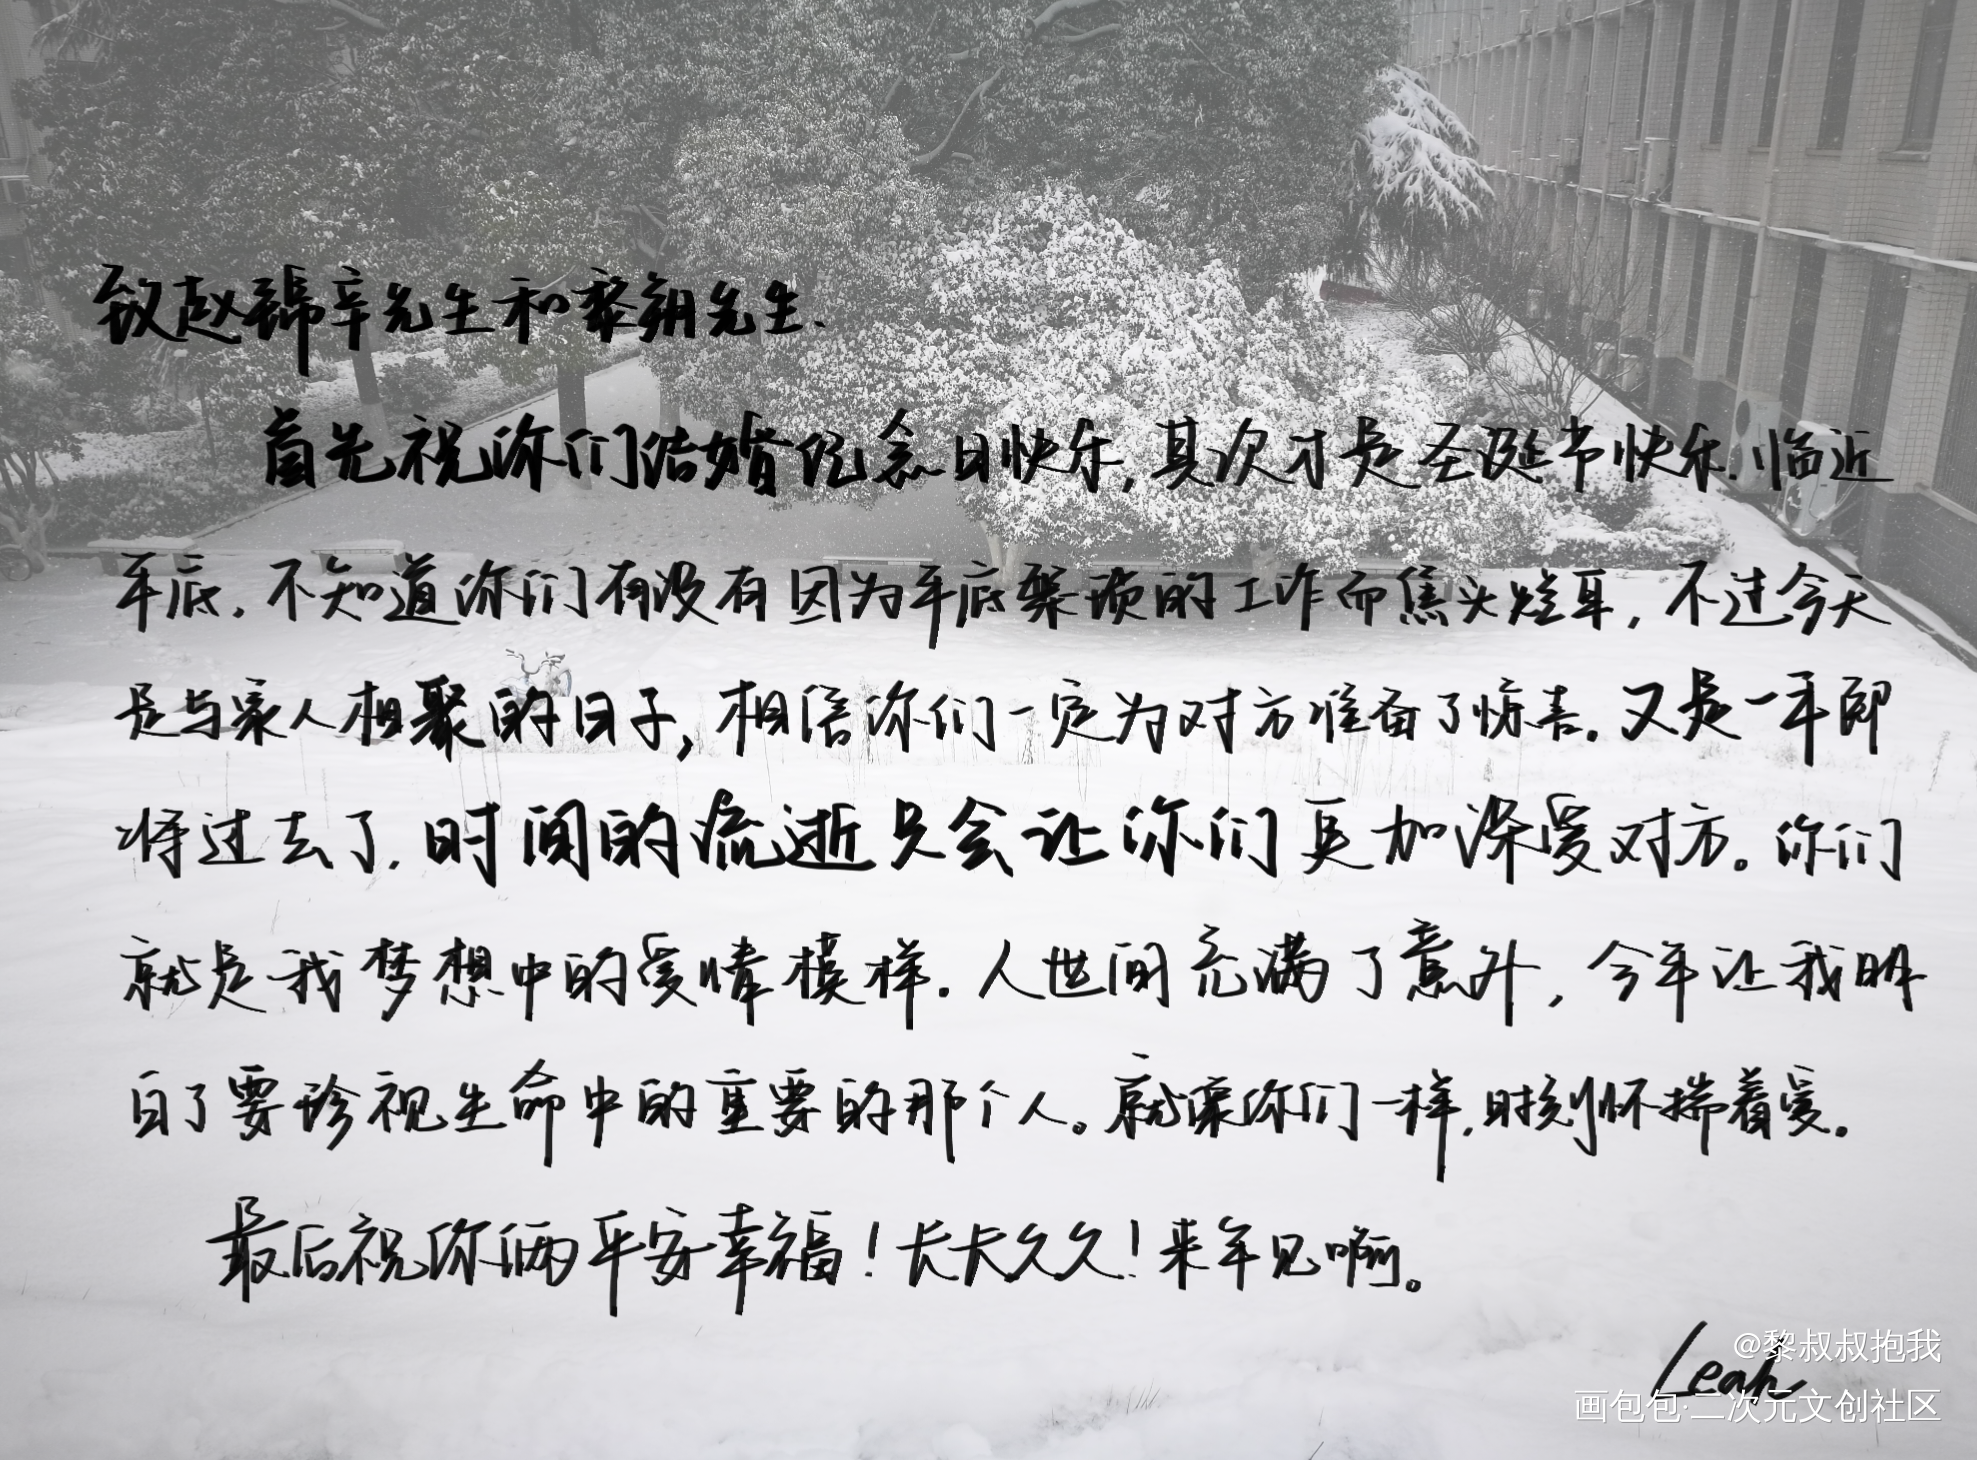 致赵锦辛先生和黎朔先生.
首先祝你们结婚纪念日快乐,其次才是圣诞节快乐.临近
年底.不知道你们有没有因为年底繁琐的工作而焦头烂耳,不过今天
是与家人相聚的日子,相信你们一定为对方准备了惊喜.又是一年即
将过去了.时间的流逝只会让你们更加深爱对方。你们
就是我梦想中的爱情模样.人世间充满了意外,今年让我明
白了要珍视生命中的重要的那个人。就像你们一样,时刻怀揣着爱.
最后祝你俩平安幸福!长长久久!来年见啊。
Leah
@黎叔叔抱我
画包包·二次元文创社区